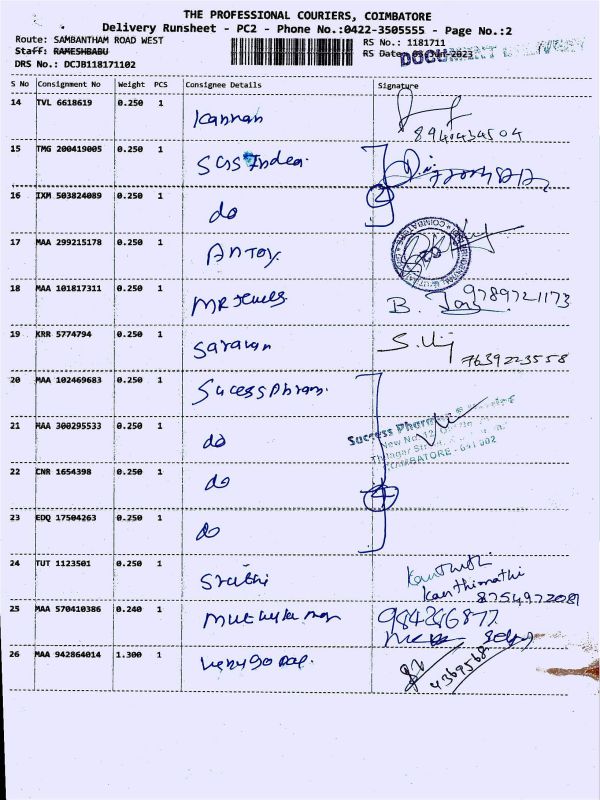 THE PROFESSIONAL COURIERS, COIMBATORE
Delivery Runsheet - PC2 - Phone No.:0422-3505555 - Page No.:2
Route: SAMBANTHAM ROAD WEST
RS No.: 1181711
Staff: RAMESHBABU
RS Date: 03-Jun-2023
DOCUMENT DELIVERY
DRS No.: DCJB118171102
S No Consignment No Weight PCS Consignee Details Signature
14 TVL 6618619 0.250 1 Kannan
15 TMG 200419005 0.250 1 SGS Index.
16 IXM 503824089 0.250 1 do 2
17 MAA 299215178 0.250 1 Antoy
18 MAA 101817311 0.250 1 MR Jewels B. 9789721173
19 KRR 5774794 0.250 1 Saravan S. 7639223558
20 MAA 102469683 0.250 1 Sucess Pharm.
21 MAA 300295533 0.250 1 do
Success Pharma
New No. 12
COIMBATORE - 641 002
22 CNR 1654398 0.250 1 do 4
23 EDQ 17504263 0.250 1 do
24 TUT 1123501 0.250 1 Kanthimathi
8754972081
25 MAA 570410386 0.240 1
26 MAA 942864014 1.300 1 Venugopal. 4369568